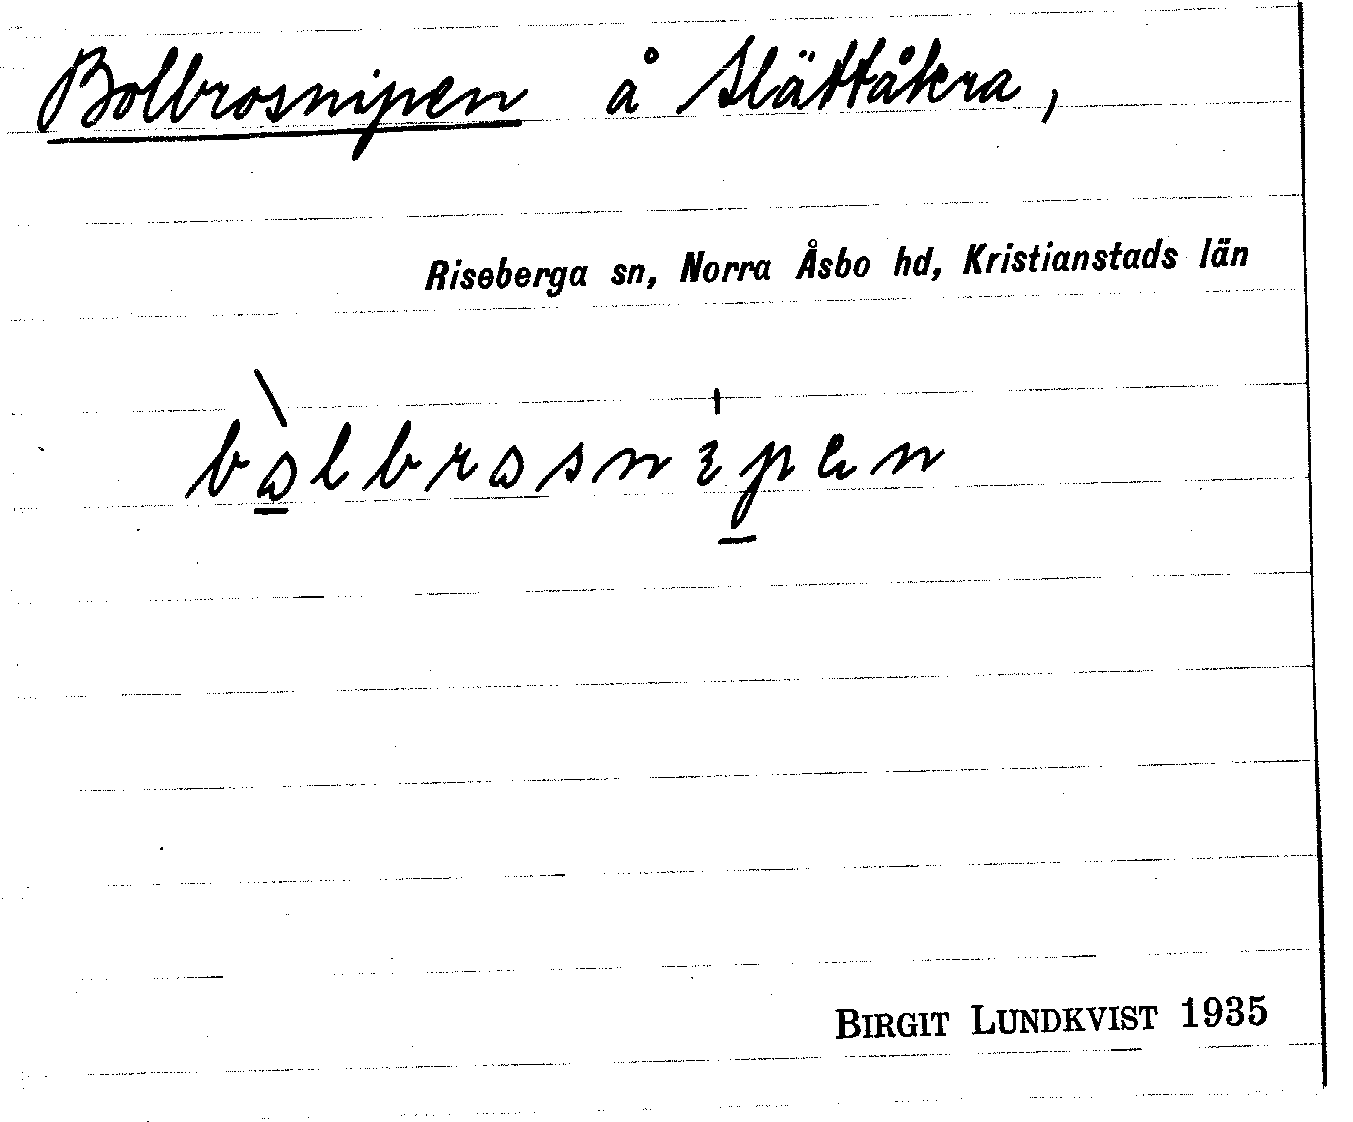 Bolbrosnipen å Slättåkra,
Riseberga sn, Norra Åsbo hd, Kristianstads län
bòlbrosnɩpen
BIRGIT LUNDKVIST 1935